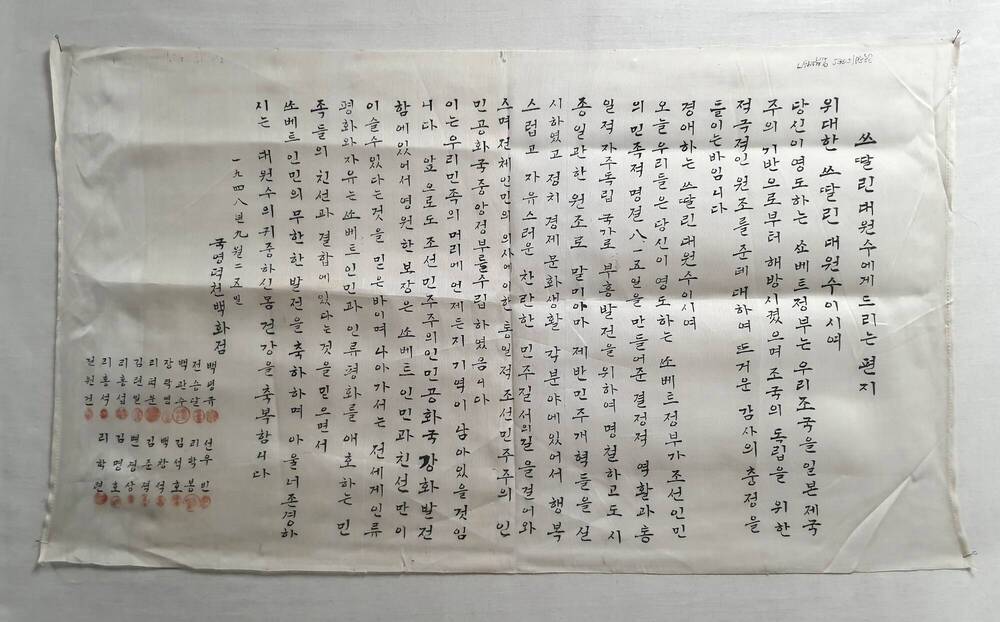 쓰딸린대원수에게드리는편지
위대한 쓰딸린 대원수이시여
당신이영도하는 쏘베트정부는 우리조국을일본제국
주의 기반으로부터 해방시켰으며 조국의 독립을 위한
적극적인 원조를준데 대하여 뜨거운 감사의 충정을
들이는바임니다
경애하는 쓰딸린대원수이시여
오늘 우리들은 당신이 영도하는 쏘베트정부가 조선인민
의 민족적명절 八·一五일을 만들어준 결정적 역활과 통
일적자주독립 국가로 부흥발전을위하여 명철하고도 시
종일관한 원조로 말미아마 제반민주개혁들을 실
시하였고 정치 경제 문화생활 각분야에있어서 행복
스럽고 자유스러운 찬란한 민주질서의길을걸어와
주며 전체인민의 의사에 의한 통일적 조선민주주의 인
민공화국중앙정부를수립 하였음니다
이는우리민족의머리에 언제든지 기역이 남아있을것임
니다 앞으로도 조선민주주의인민공화국 강화발전
함에있어서 영원한보장은 쏘베트 인민과친선만이
이슬수있다는것을 믿은바이며 나아가서는 전세게인류
평화와자유는쏘베트인민과 인류평화를 애호하는 민
족들의 친선과 결합에있다는것을믿으면서
쏘베트 인민의 무한한발전을축하하며 아울너존경하
시는 대원수의귀중하신몸 건강을축복함니다
一九四八년九월二五일
국영덕천백화점
백병규
전승산
백관수
장락엽
리석분
김인일
리홍섭
리홍석
선우빈
리학봉
김석호
백창석
김준적
변정상
김명호
리학현